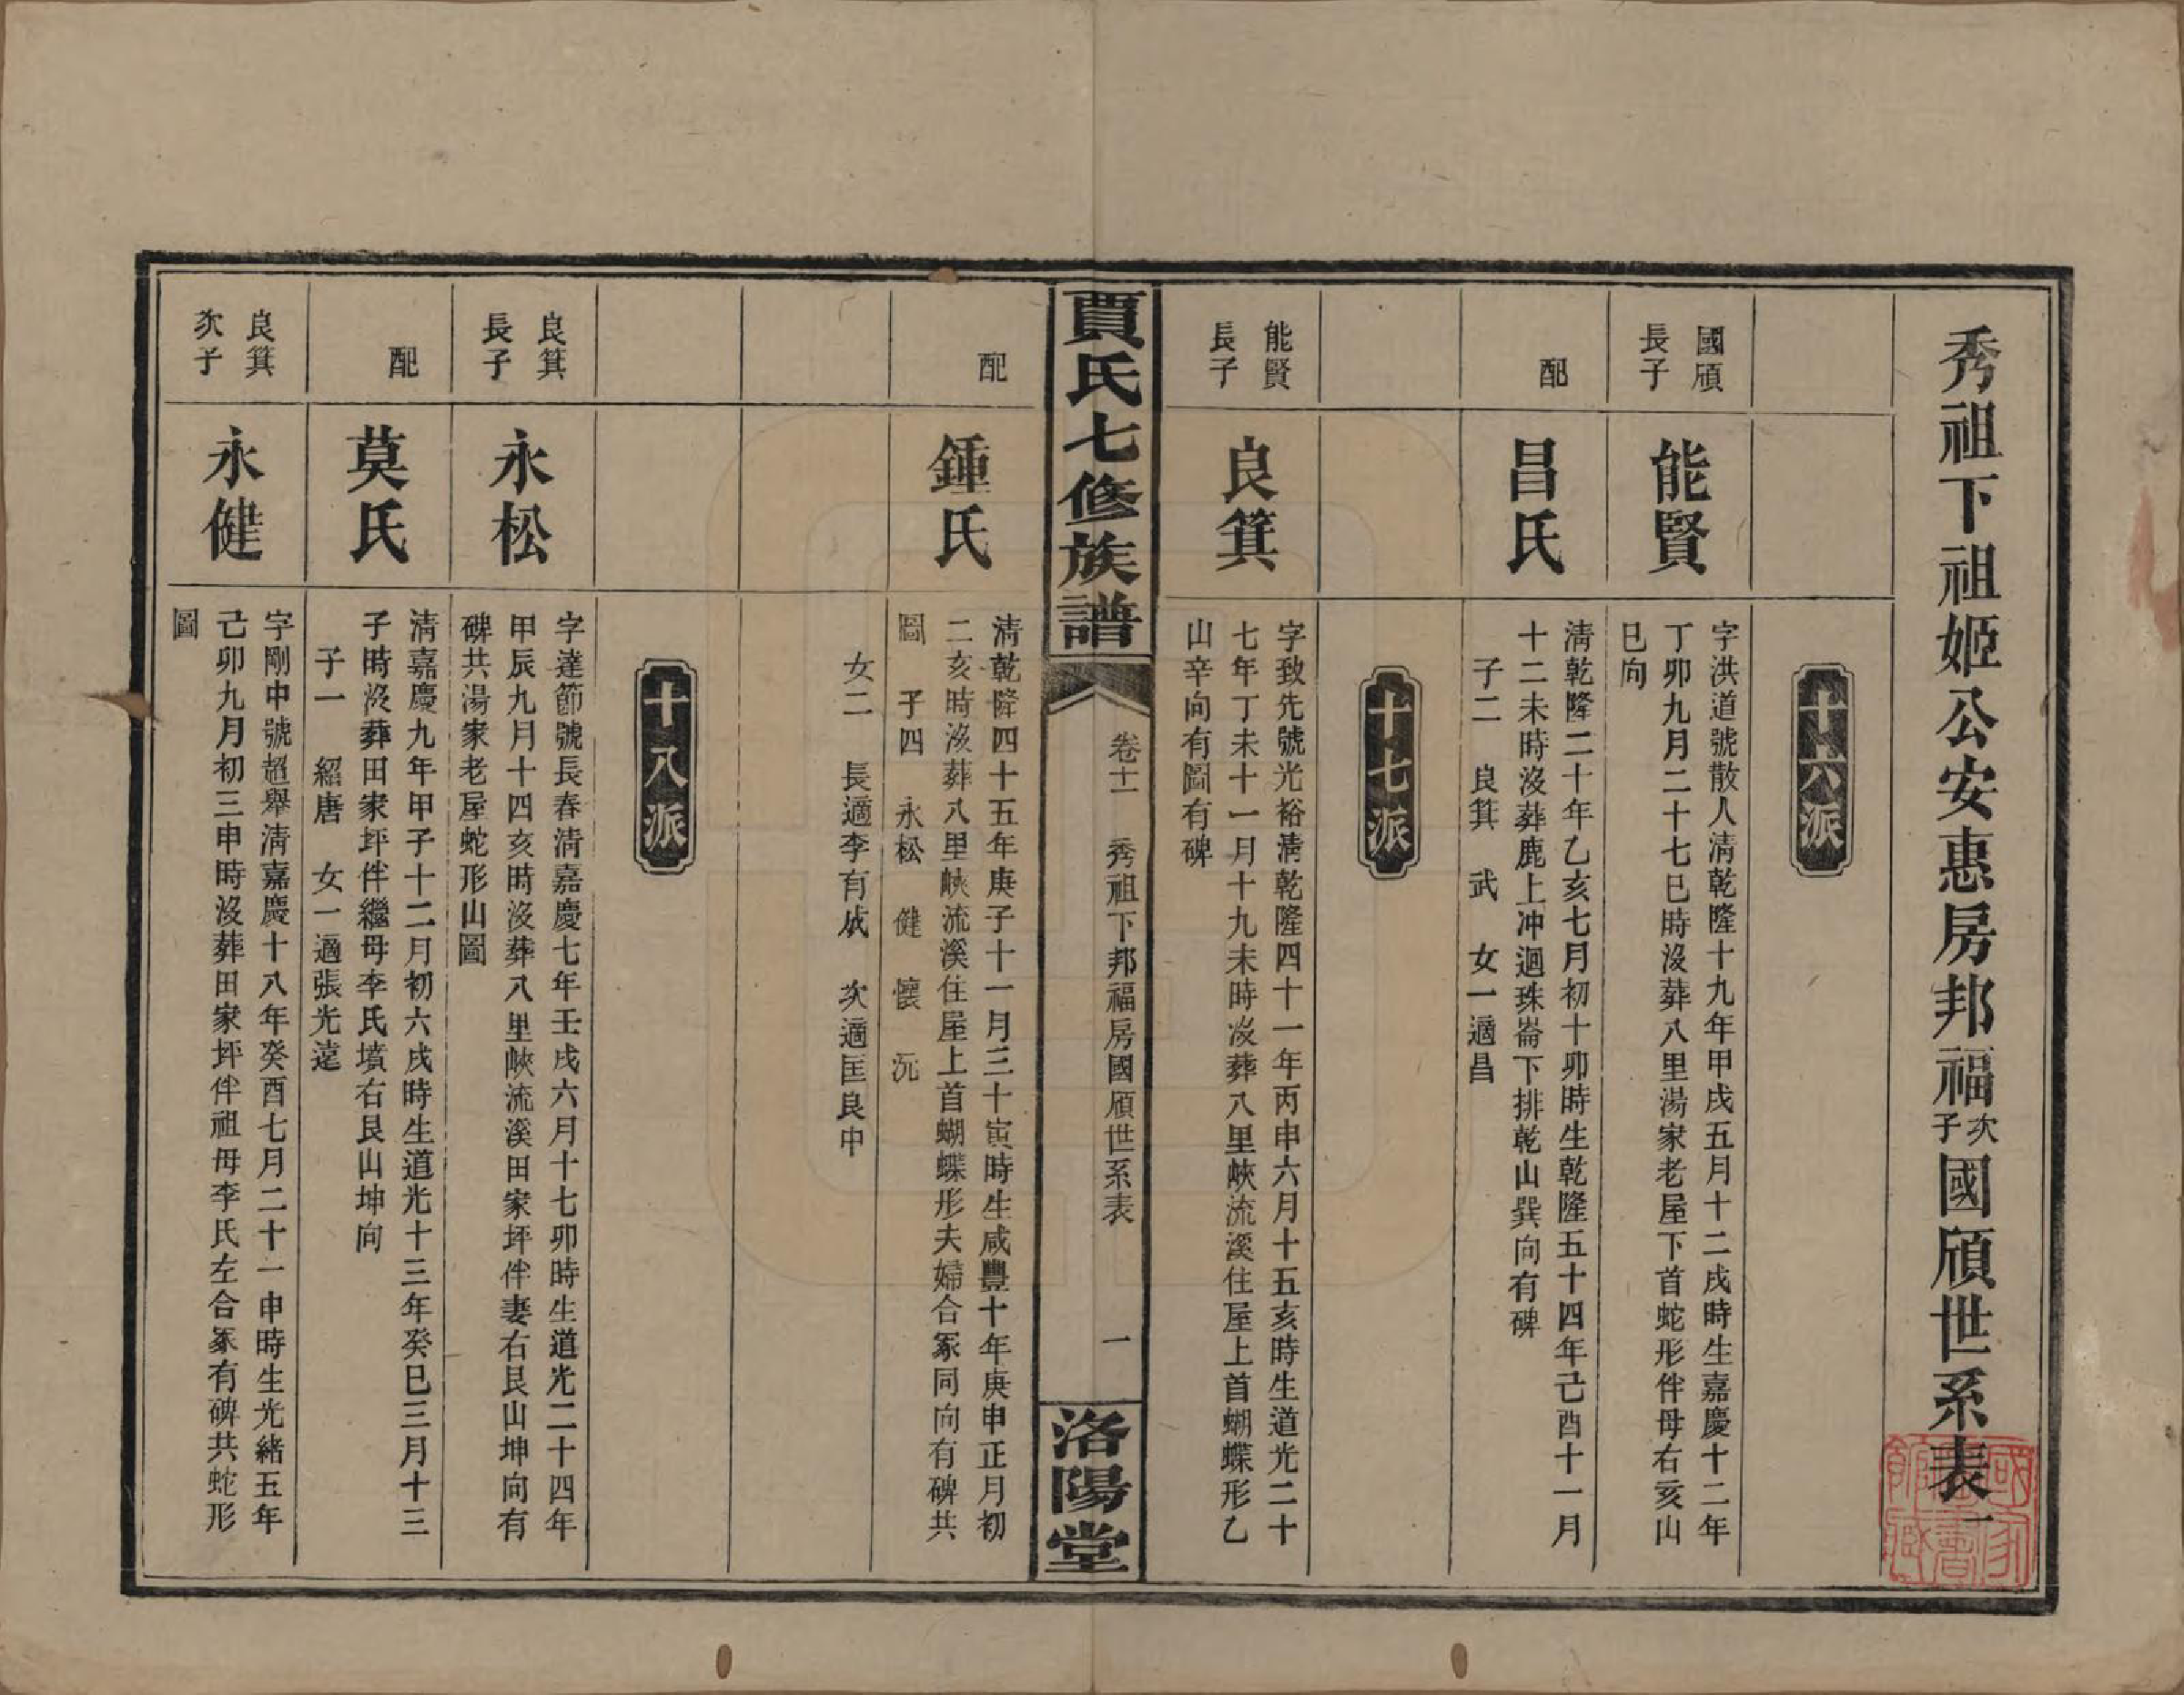 秀祖下祖姬公安惠房邦福次子國頎世系表一
十六派
國頎長子
能賢
字洪道號散人清乾隆十九年甲戌五月十二戌時生嘉慶十二年
丁卯九月二十七巳時沒葬八里湯家老屋下首蛇形伴母右亥山
巳向
配
昌氏
清乾隆二十年乙亥七月初十卯時生乾隆五十四年己酉十一月
十二未時沒葬鹿上冲迴珠崙下排乾山巽向有碑
子二 良箕 武 女一適昌
十七派
能賢長子
良箕
字致先號光裕清乾隆四十一年丙申六月十五亥時生道光二十
七年丁未十一月十九未時沒葬八里峽流溪住屋上首蝴蝶形乙
山辛向有圖有碑
賈氏七修族譜
卷十一 秀祖下邦福房國頎世系表 一
洛陽堂
配
鍾氏
清乾隆四十五年庚子十一月三十寅時生咸豐十年庚申正月初
二亥時沒葬八里峽流溪住屋上首蝴蝶形夫婦合冢同向有碑共
圖 子四 永松 健 懷 沅
女二 長適李有成 次適匡良中
十八派
良箕長子
永松
字達節號長春清嘉慶七年壬戌六月十七卯時生道光二十四年
甲辰九月十四亥時沒葬八里峽流溪田家坪伴妻右艮山坤向有
碑共湯家老屋蛇形山圖
配
莫氏
清嘉慶九年甲子十二月初六戌時生道光十三年癸巳三月十三
子時沒葬田家坪伴繼母李氏墳右艮山坤向
子一 紹唐 女一適張光遠
良箕次子
永健
字剛中號超舉清嘉慶十八年癸酉七月二十一申時生光緒五年
己卯九月初三申時沒葬田家坪伴祖母李氏左合冢有碑共蛇形
圖